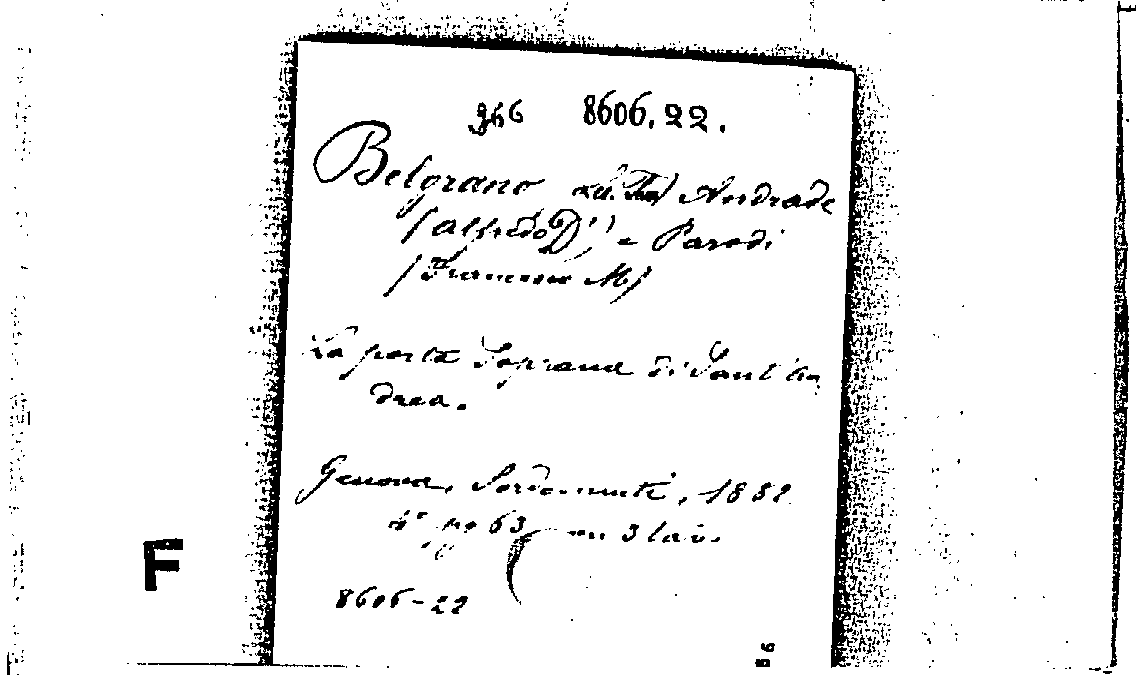 366 8606.22.
Belgrano Lu. Tom) Andrade
(Alfredo D') e Parodi
(Francesco M)
La porta Soprana di Sant'An
drea.
Genova, Sordomuti, 1882
4° pp 63 con 3 tav.
F
8606-22